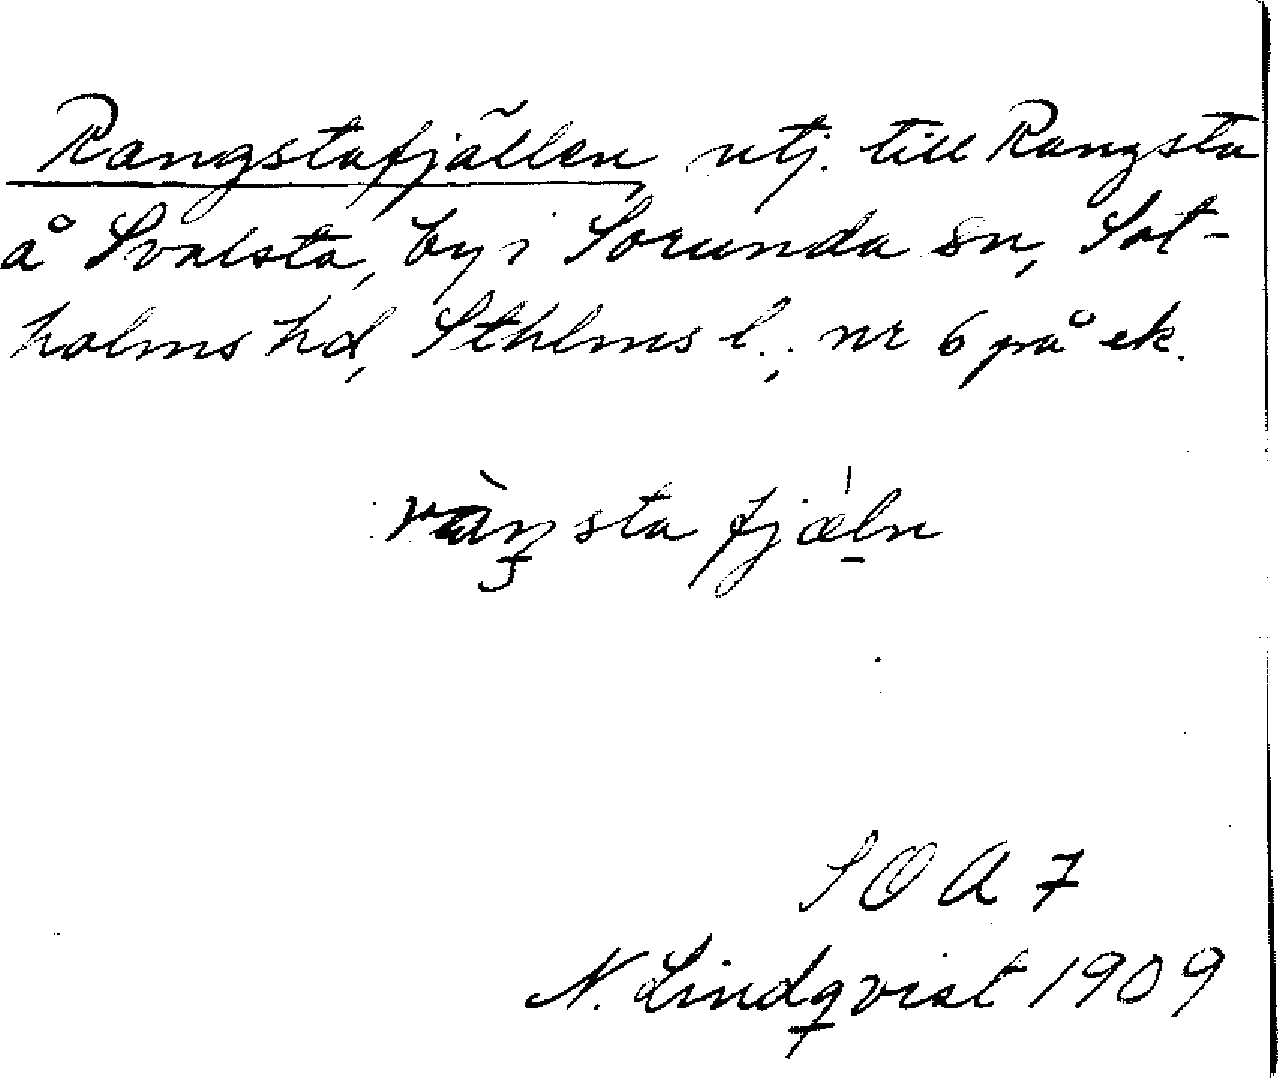 Rangstafjällen, utj. till Rangsta
å Svalsta, by i Sorunda sn, Sot-
holms hd, Sthlms l.; nr 6 på ek.
ràŋsta fjæ̀ln
SOA 7
N. Lindqvist 1909